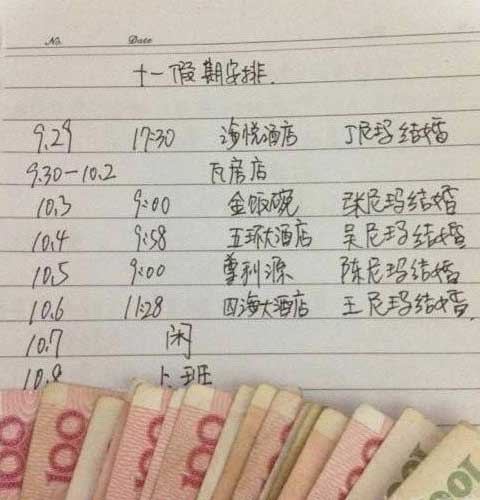 No. Date
十一假期安排.
9.29 17:30 海悦酒店 丁尼玛结婚
9.30-10.2 瓦房店
10.3 9:00 金饭碗 张尼玛结婚
10.4 9:58 五环大酒店 吴尼玛结婚
10.5 9:00 尊利源 陈尼玛结婚
10.6 11:28 四海大酒店 王尼玛结婚.
10.7 闲
10.8 上班
100 100 100 100 100 100